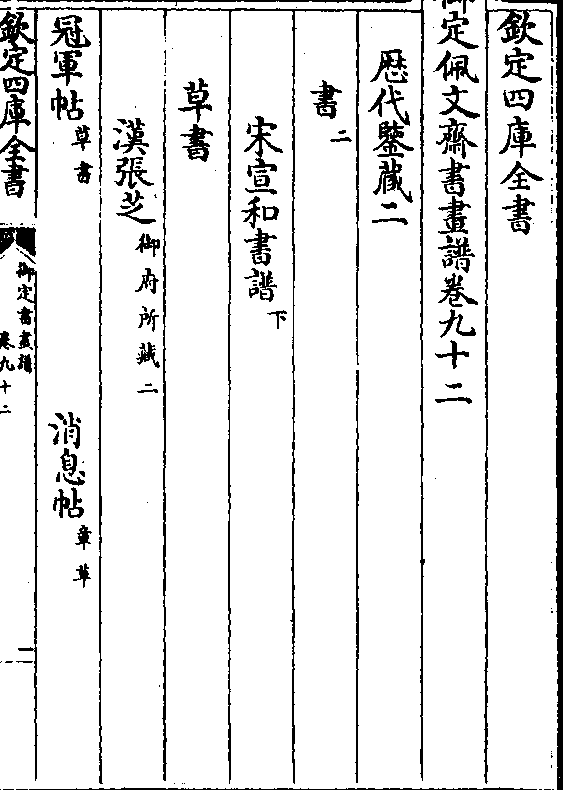 欽定四庫全書
御定佩文齋書畫譜卷九十二
歴代鑒藏二
書二
宋宣和書譜下
草書
漢張芝御府所藏二
冠軍帖草書 消息帖章草
欽定四庫全書
御定書畫譜
卷九十二
一